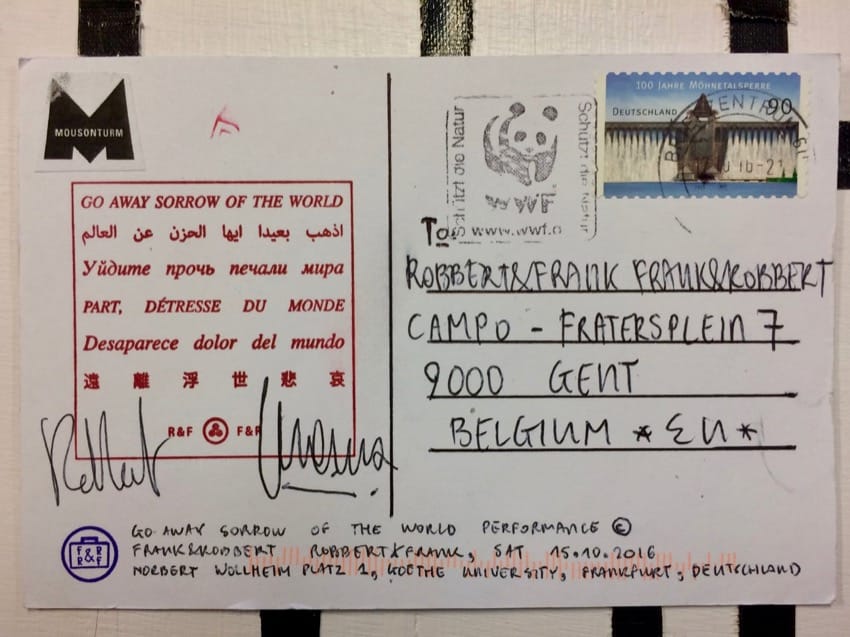 MOUSONTURM
GO AWAY SORROW OF THE WORLD
اذهب بعيدا ايها الحزن عن العالم
Уйдите прочь печали мира
PART, DÉTRESSE DU MONDE
Desaparece dolor del mundo
遠離浮世悲哀
R&F F&R
Schützt die Natur
WWF
Schützt die Natur
www.wwf.d
100 JAHRE MÖHNETALSPERRE
DEUTSCHLAND 90
BRIEFZENTRUM
To:
ROBBERT&FRANK FRANK&ROBBERT
CAMPO - FRATERSPLEIN 7
9000 GENT
BELGIUM * EU *
F&R
R&F
GO AWAY SORROW OF THE WORLD PERFORMANCE ©
FRANK&ROBBERT ROBBERT&FRANK, SAT 15.10.2016
NORBERT WOLLHEIM PLATZ 1, GOETHE UNIVERSITY, FRANKFURT, DEUTSCHLAND